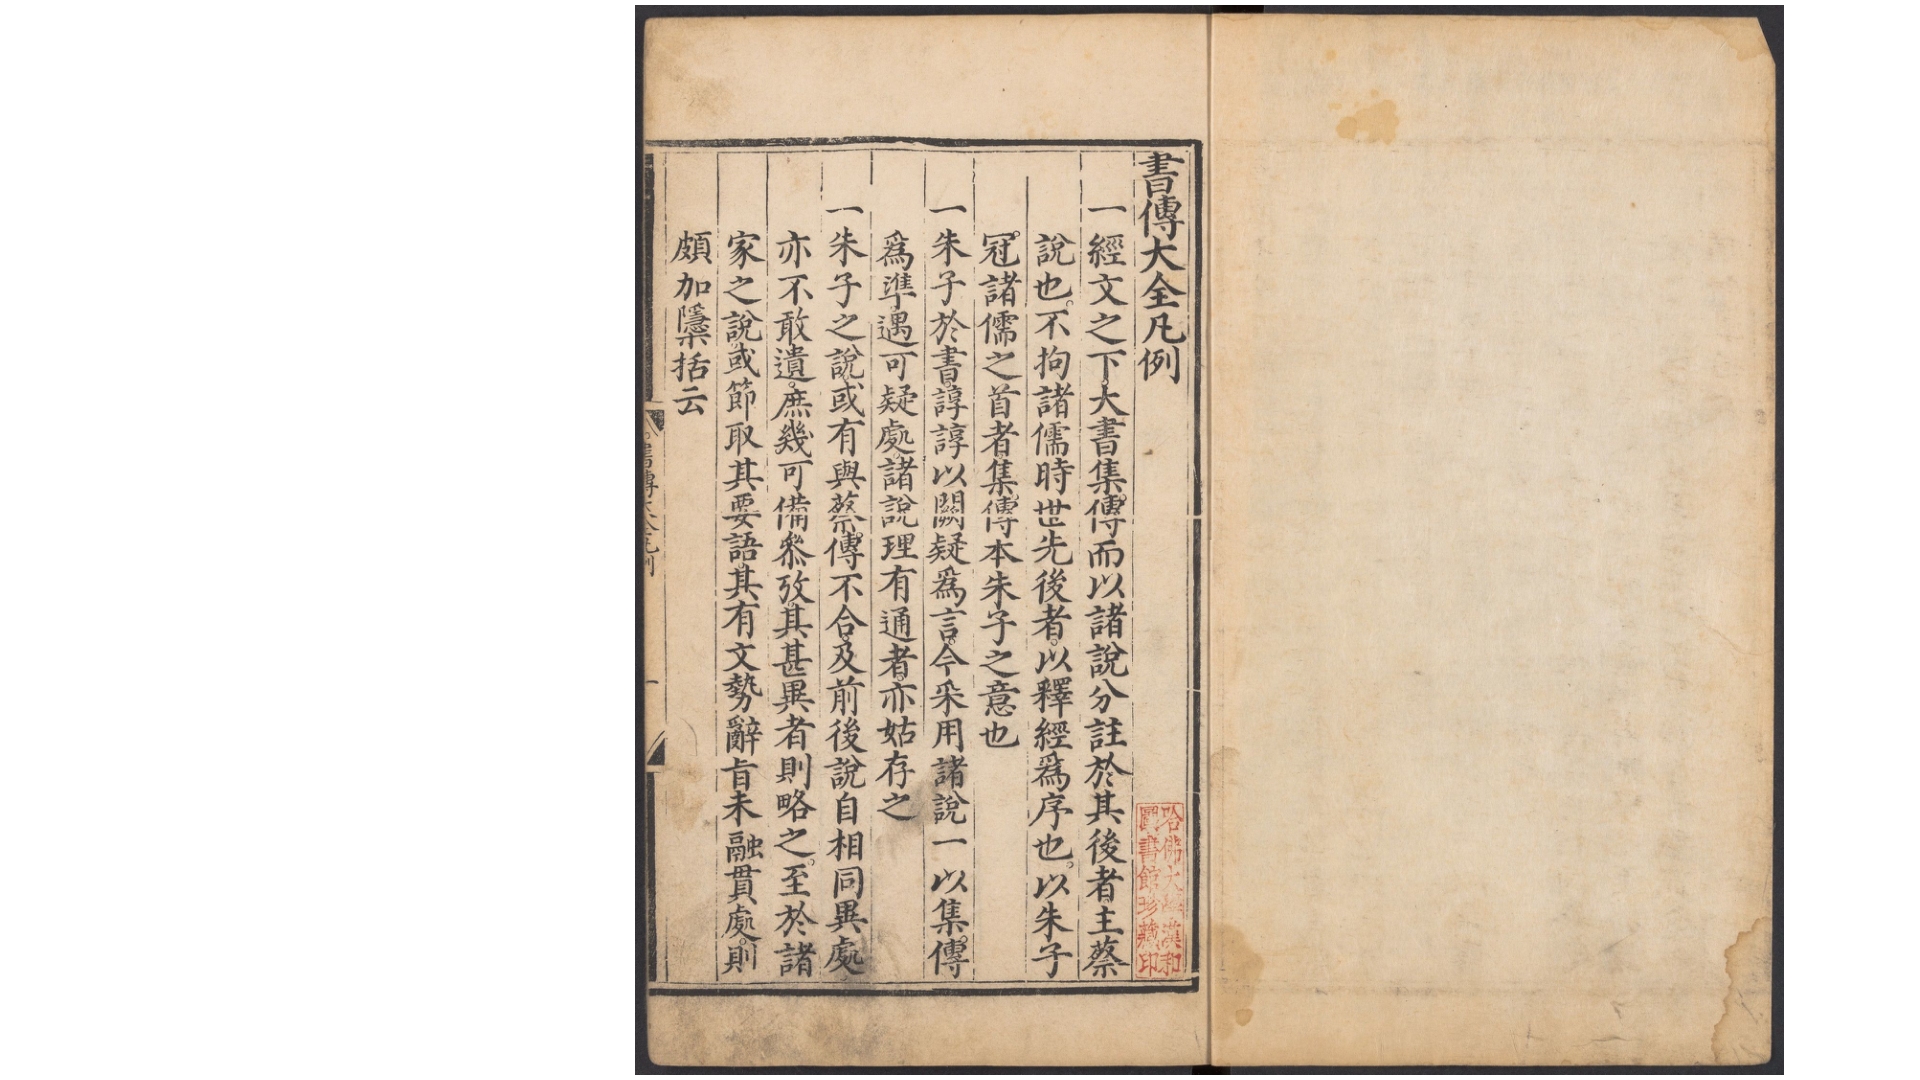 書傳大全凡例
一經文之下大書集傳而以諸說分註於其後者主蔡
說也不拘諸儒時世先後者以釋經爲序也以朱子
冠諸儒之首者集傳本朱子之意也
一朱子於書諄諄以闕疑爲言今采用諸說一以集傳
爲準遇可疑處諸說理有通者亦姑存之
一朱子之說或有與蔡傳不合及前後說自相同異處
亦不敢遺庶幾可備叅攷其甚異者則略之至於諸
家之說或節取其要語其有文勢辭旨未融貫處則
頗加隱括云
書傳大全凡例
一
哈佛大學漢和
圖書館珍藏印